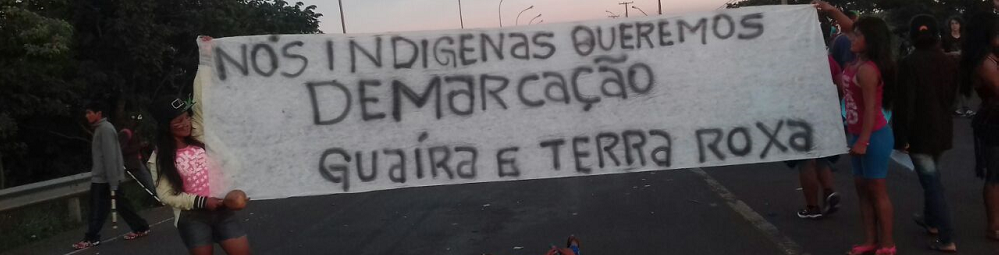 NÓS INDIGENAS QUEREMOS
DEMARCAÇÃO
GUAÍRA E TERRA ROXA